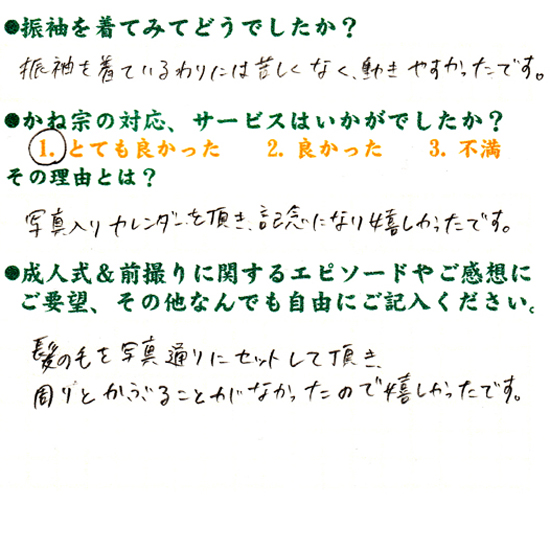 ●振袖を着てみてどうでしたか？
振袖を着ているわりには苦しくなく、動きやすかったです。
●かね宗の対応、サービスはいかがでしたか？
1. とても良かった 2. 良かった 3. 不満
その理由とは？
写真入りカレンダーを頂き、記念になり嬉しかったです。
●成人式＆前撮りに関するエピソードやご感想に
ご要望、その他なんでも自由にご記入ください。
髪の毛を写真通りにセットして頂き、
周りとかぶることがなかったので嬉しかったです。